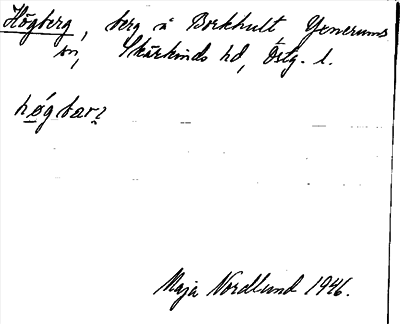 Högberg, berg å Borkhult, Yxnerums
sn, Skärkinds hd, Östg. l.
høgbarʒ
Maja Nordlund 1946.